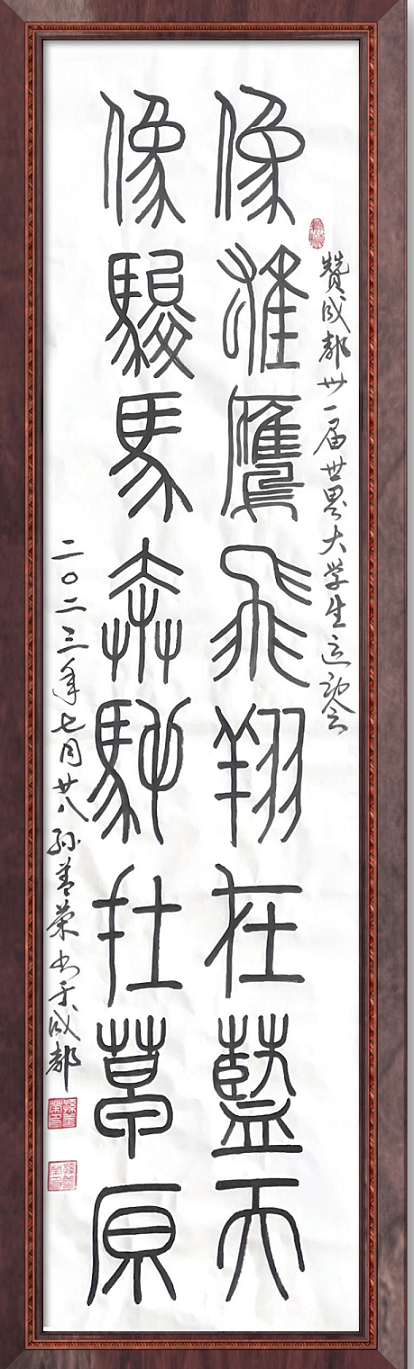 赞成都卅一届世界大学生运动会
像雄鷹飛翔在藍天
像駿馬奔馳在草原
二〇二三年七月廿八孙善荣书于成都